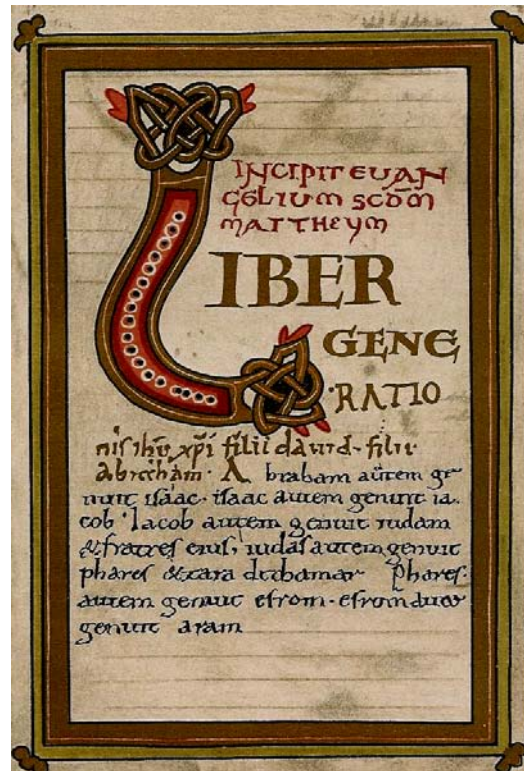 INCIPIT EUAN
GELIUM SCDM
MATTHEUM
LIBER
GENE
RATIO
nis ihu xpi filii dauid · filii
abraham · Abraham autem ge
nuit isaac · isaac autem genuit ia
cob · Iacob autem genuit iudam
& fratres eius, iudas autem genuit
phares & zara de thamar Phares
autem genuit esrom · esrom autem
genuit aram